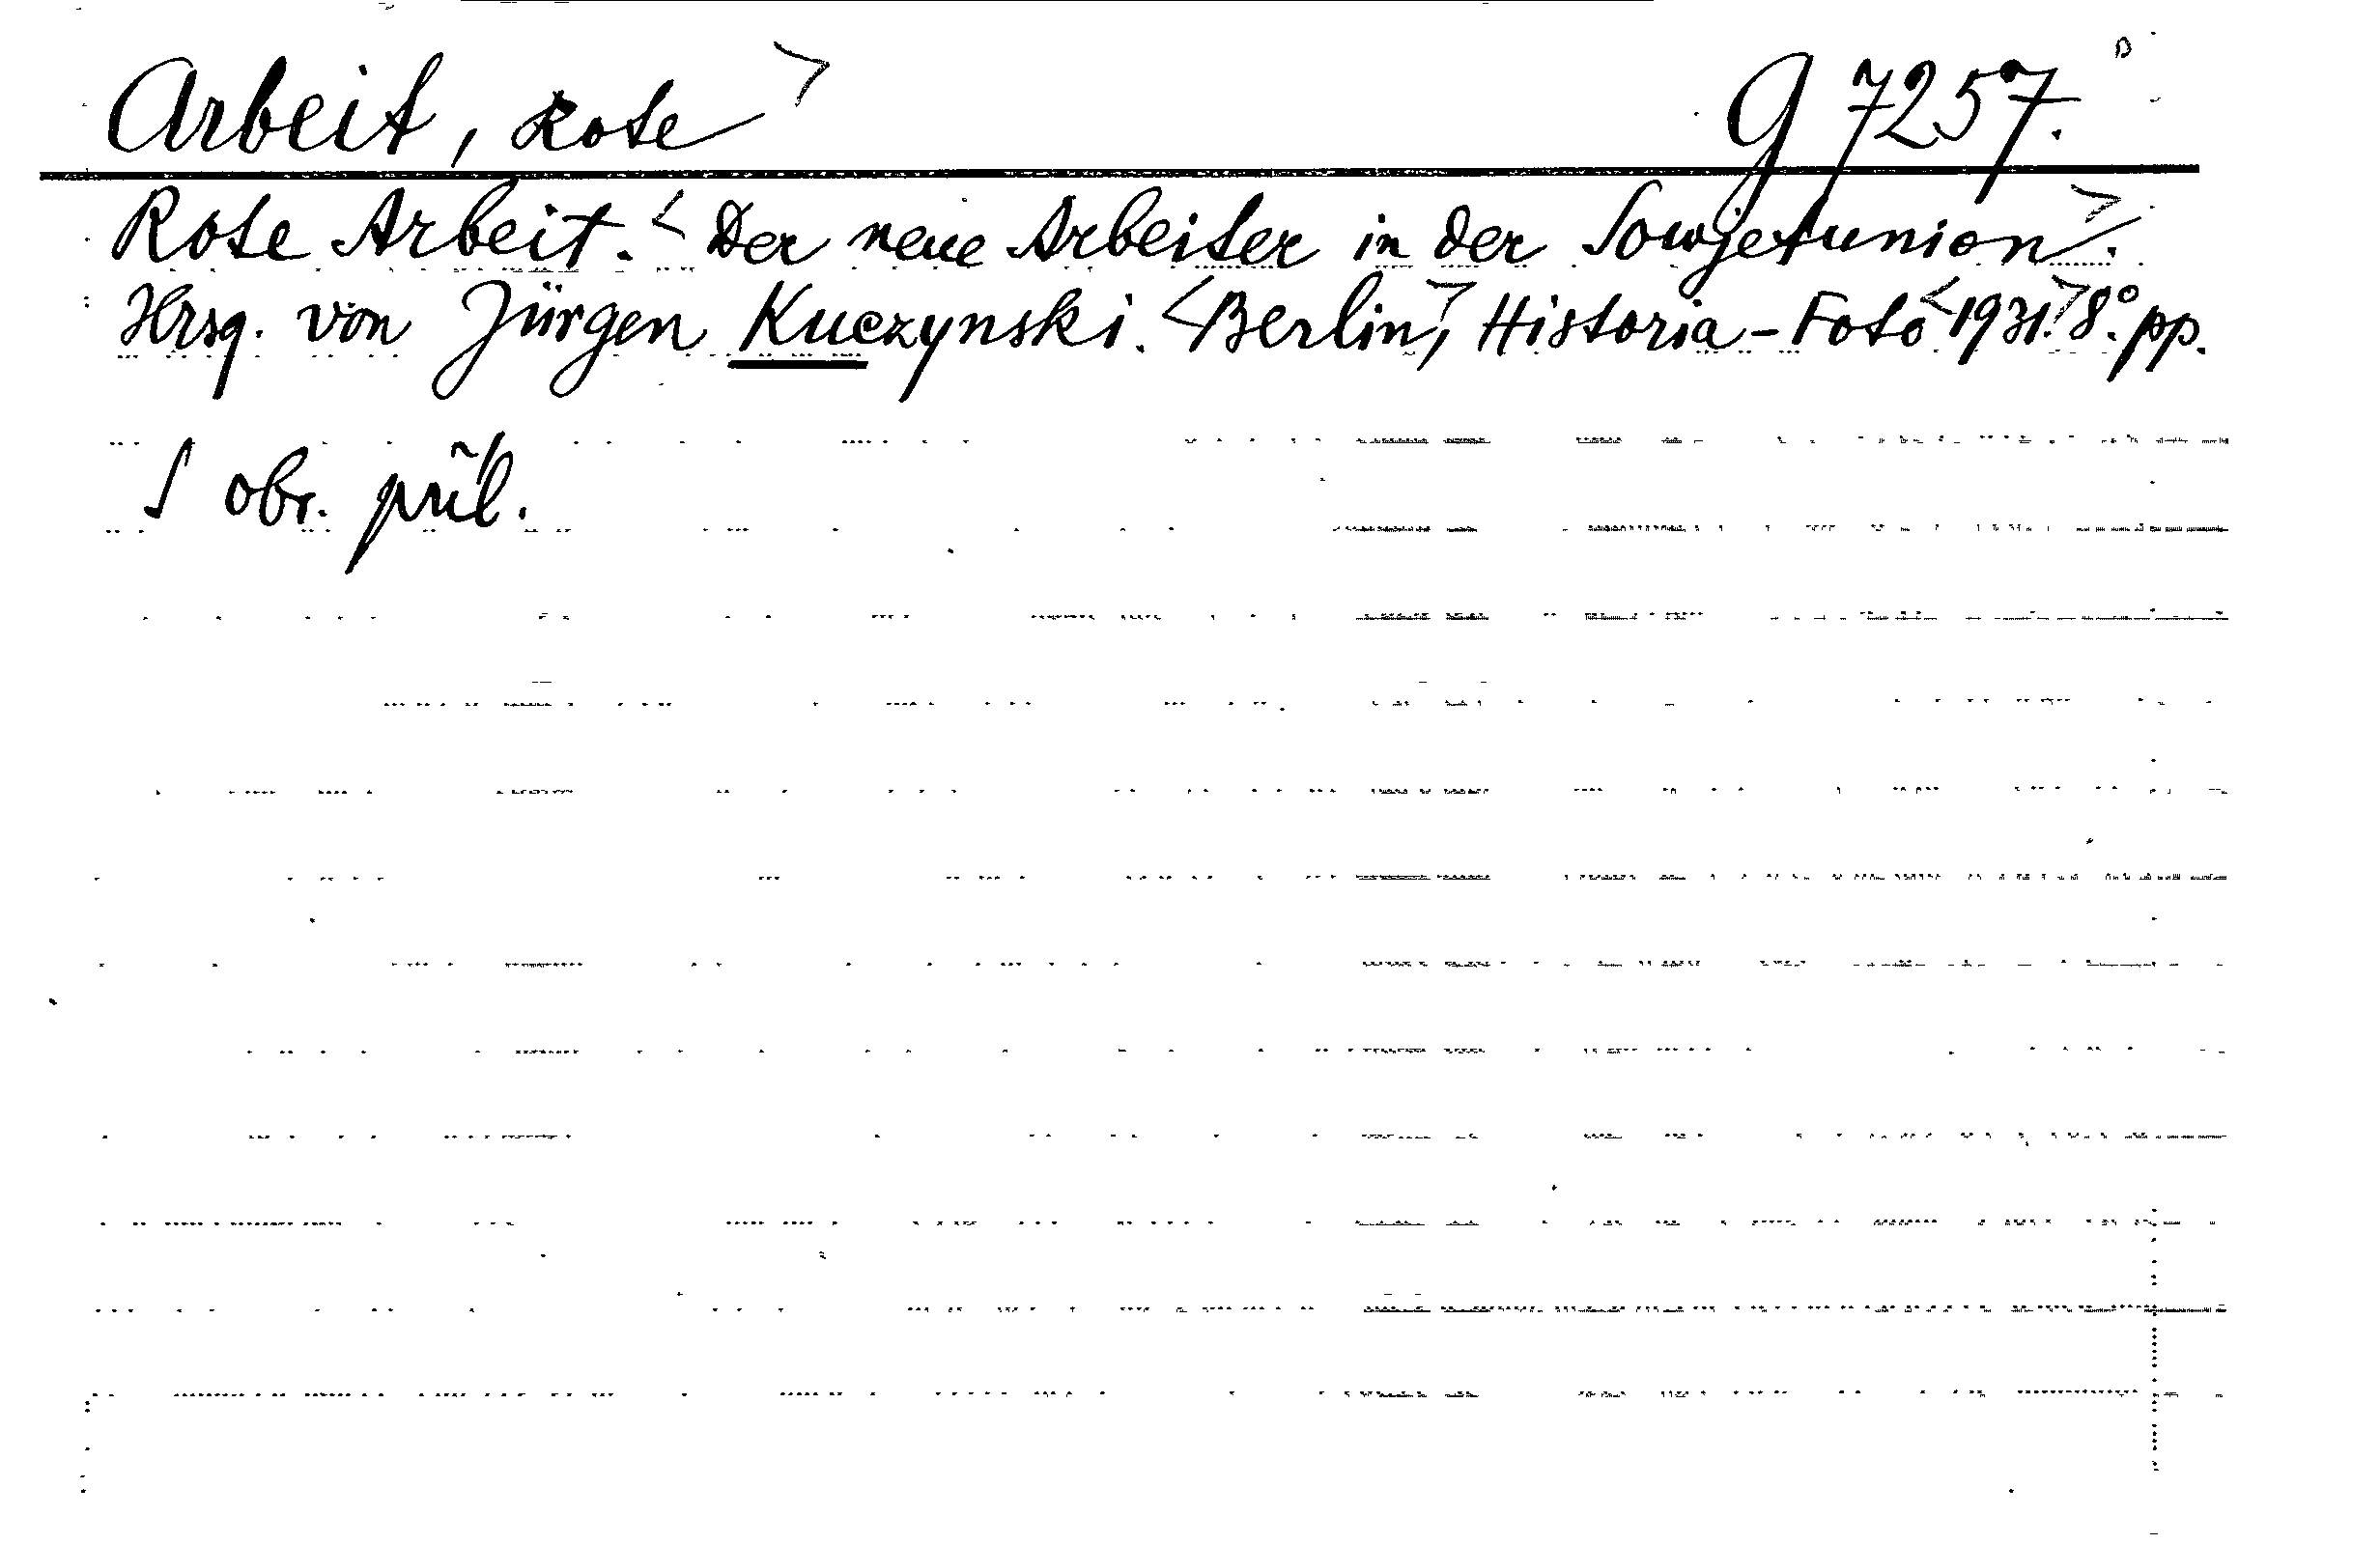 Arbeit, Rote> G 7257.
Rote Arbeit. <Der neue Arbeiter in der Sowjetunion>.
Hrsg. von Jürgen Kuczynski. <Berlin>, Historia-Foto <1931.> 8°. pp.
S obr. příl.